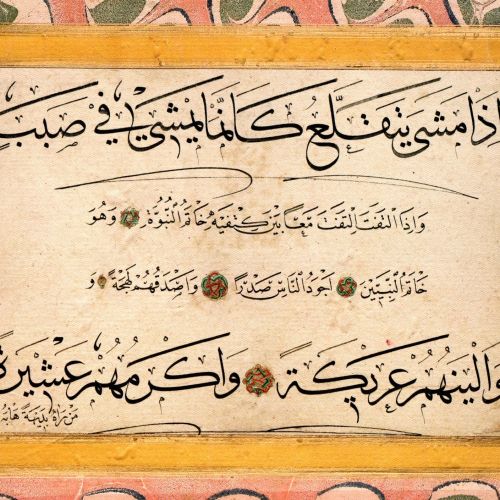 إِذَا مَشَى يَتَقَلَّعُ كَأَنَّمَا يَمْشِي فِي صَبَبٍ
وَإِذَا الْتَفَتَ الْتَفَتَ مَعًا بَيْنَ كَتِفَيْهِ خَاتَمُ النُّبُوَّةِ وَهُوَ
خَاتَمُ النَّبِيِّينَ أَجْوَدُ النَّاسِ صَدْرًا وَأَصْدَقُهُمْ لَهْجَةً وَ
وَأَلْيَنُهُمْ عَرِيكَةً وَأَكْرَمُهُمْ عَشِيرَةً
مَنْ رَآهُ بَدِيهَةً هَابَهُ